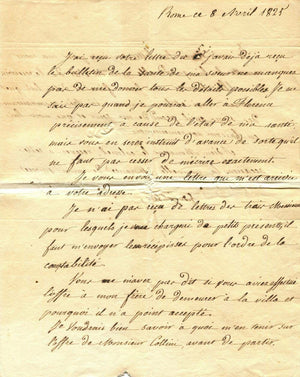 Rome ce 8 Avril 1825
J'ai reçu votre lettre du 5 j'avais déjà reçu
le bulletin de la santé de ma sœur ne manquez
pas de me donner tous les détails possibles Je ne
sais pas quand je pourrai aller à Florence
précisément à cause de l'état de ma santé
mais vous en serez instruit d'avance de sorte qu'il
ne faut pas cesser de m'écrire exactement.
Je vous envoy une lettre qui m'est arrivée
à votre adresse
Je n'ai pas reçu de lettres des trois Messieurs
pour lesquels je vous chargeai de petits presents, il
faut m'envoyer les récépissés pour l'ordre de la
comptabilité.
Vous ne m'avez pas dit si vous avez effectué
l'offre à mon frère de demeurer à la villa et
pourquoi il n'a point accepté.
Je Voudrais bien savoir à quoi m'en tenir sur
l'offre de Monsieur Collini avant de partir.